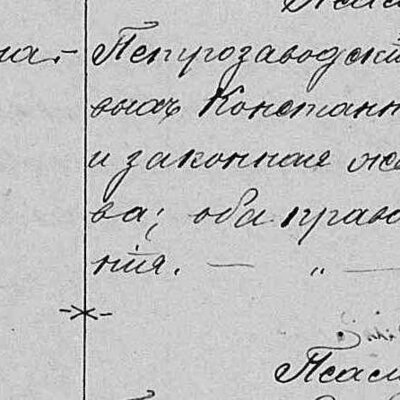 Псал
на- Петрозаводскі
вичъ Константи
и законная же
ва; оба право
нія. — " —
Псал